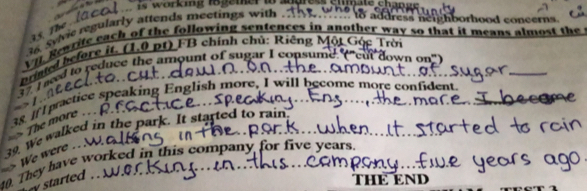 35. The local is working together to address climate change
36. Sylvie regularly attends meetings with the whole community to address neighborhood concerns.
VII. Rewrite each of the following sentences in another way so that it means almost the
printed before it. (1.0 pt) FB chính chủ: Riêng Một Góc Trời
37. I need to reduce the amount of sugar I consume. ("cut down on")
=> I need to cut down on the amount of sugar
38. If I practice speaking English more, I will become more confident.
=> The more practice speaking Eng, the more I become
39. We walked in the park. It started to rain.
=> We were walking in the park when it started to rain
40. They have worked in this company for five years.
started working in this company five years ago
THE END